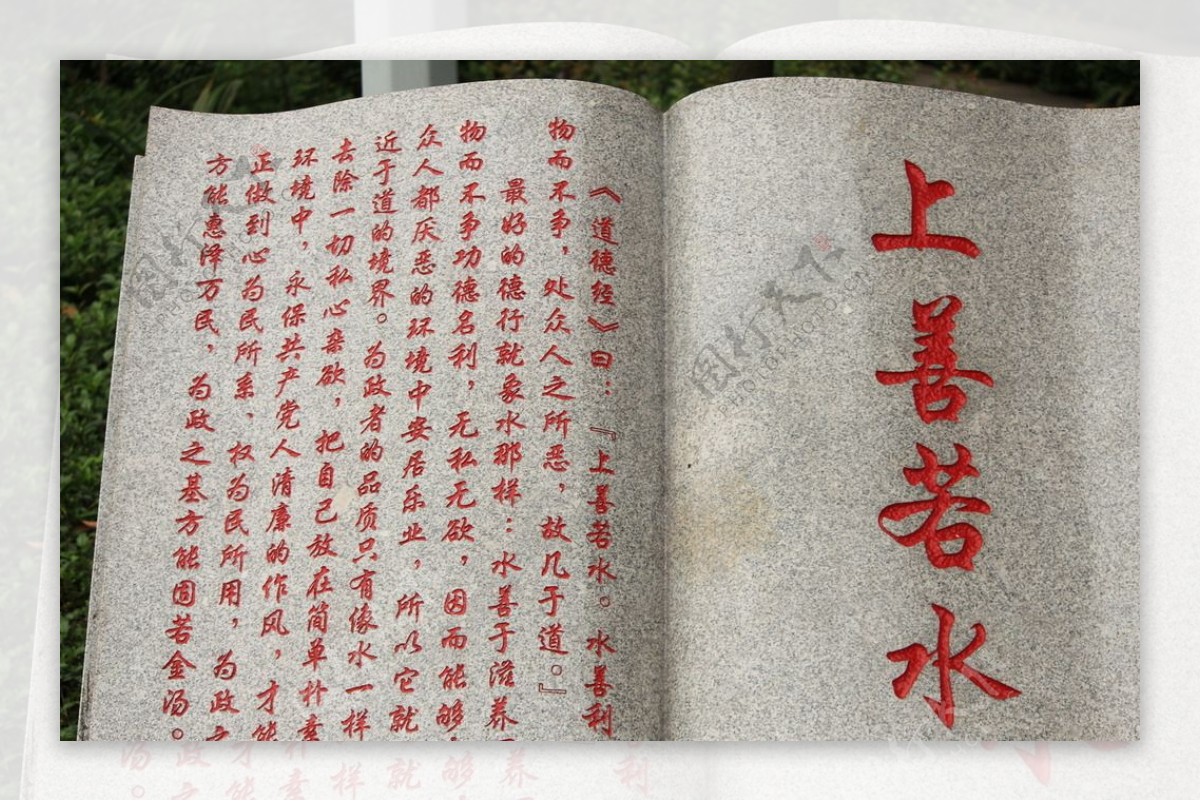 上善若水
《道德经》曰：『上善若水。水善利
物而不争，处众人之所恶，故几于道。』
最好的德行就象水那样：水善于滋养
物而不争功德名利，无私无欲，因而能够
众人都厌恶的环境中安居乐业，所以它就
近于道的境界。为政者的品质只有像水一样
去除一切私心杂欲，把自己放在简单朴素
环境中，永保共产党人清廉的作风，才能
正做到心为民所系、权为民所用，为政之
方能惠泽万民，为政之基方能固若金汤。